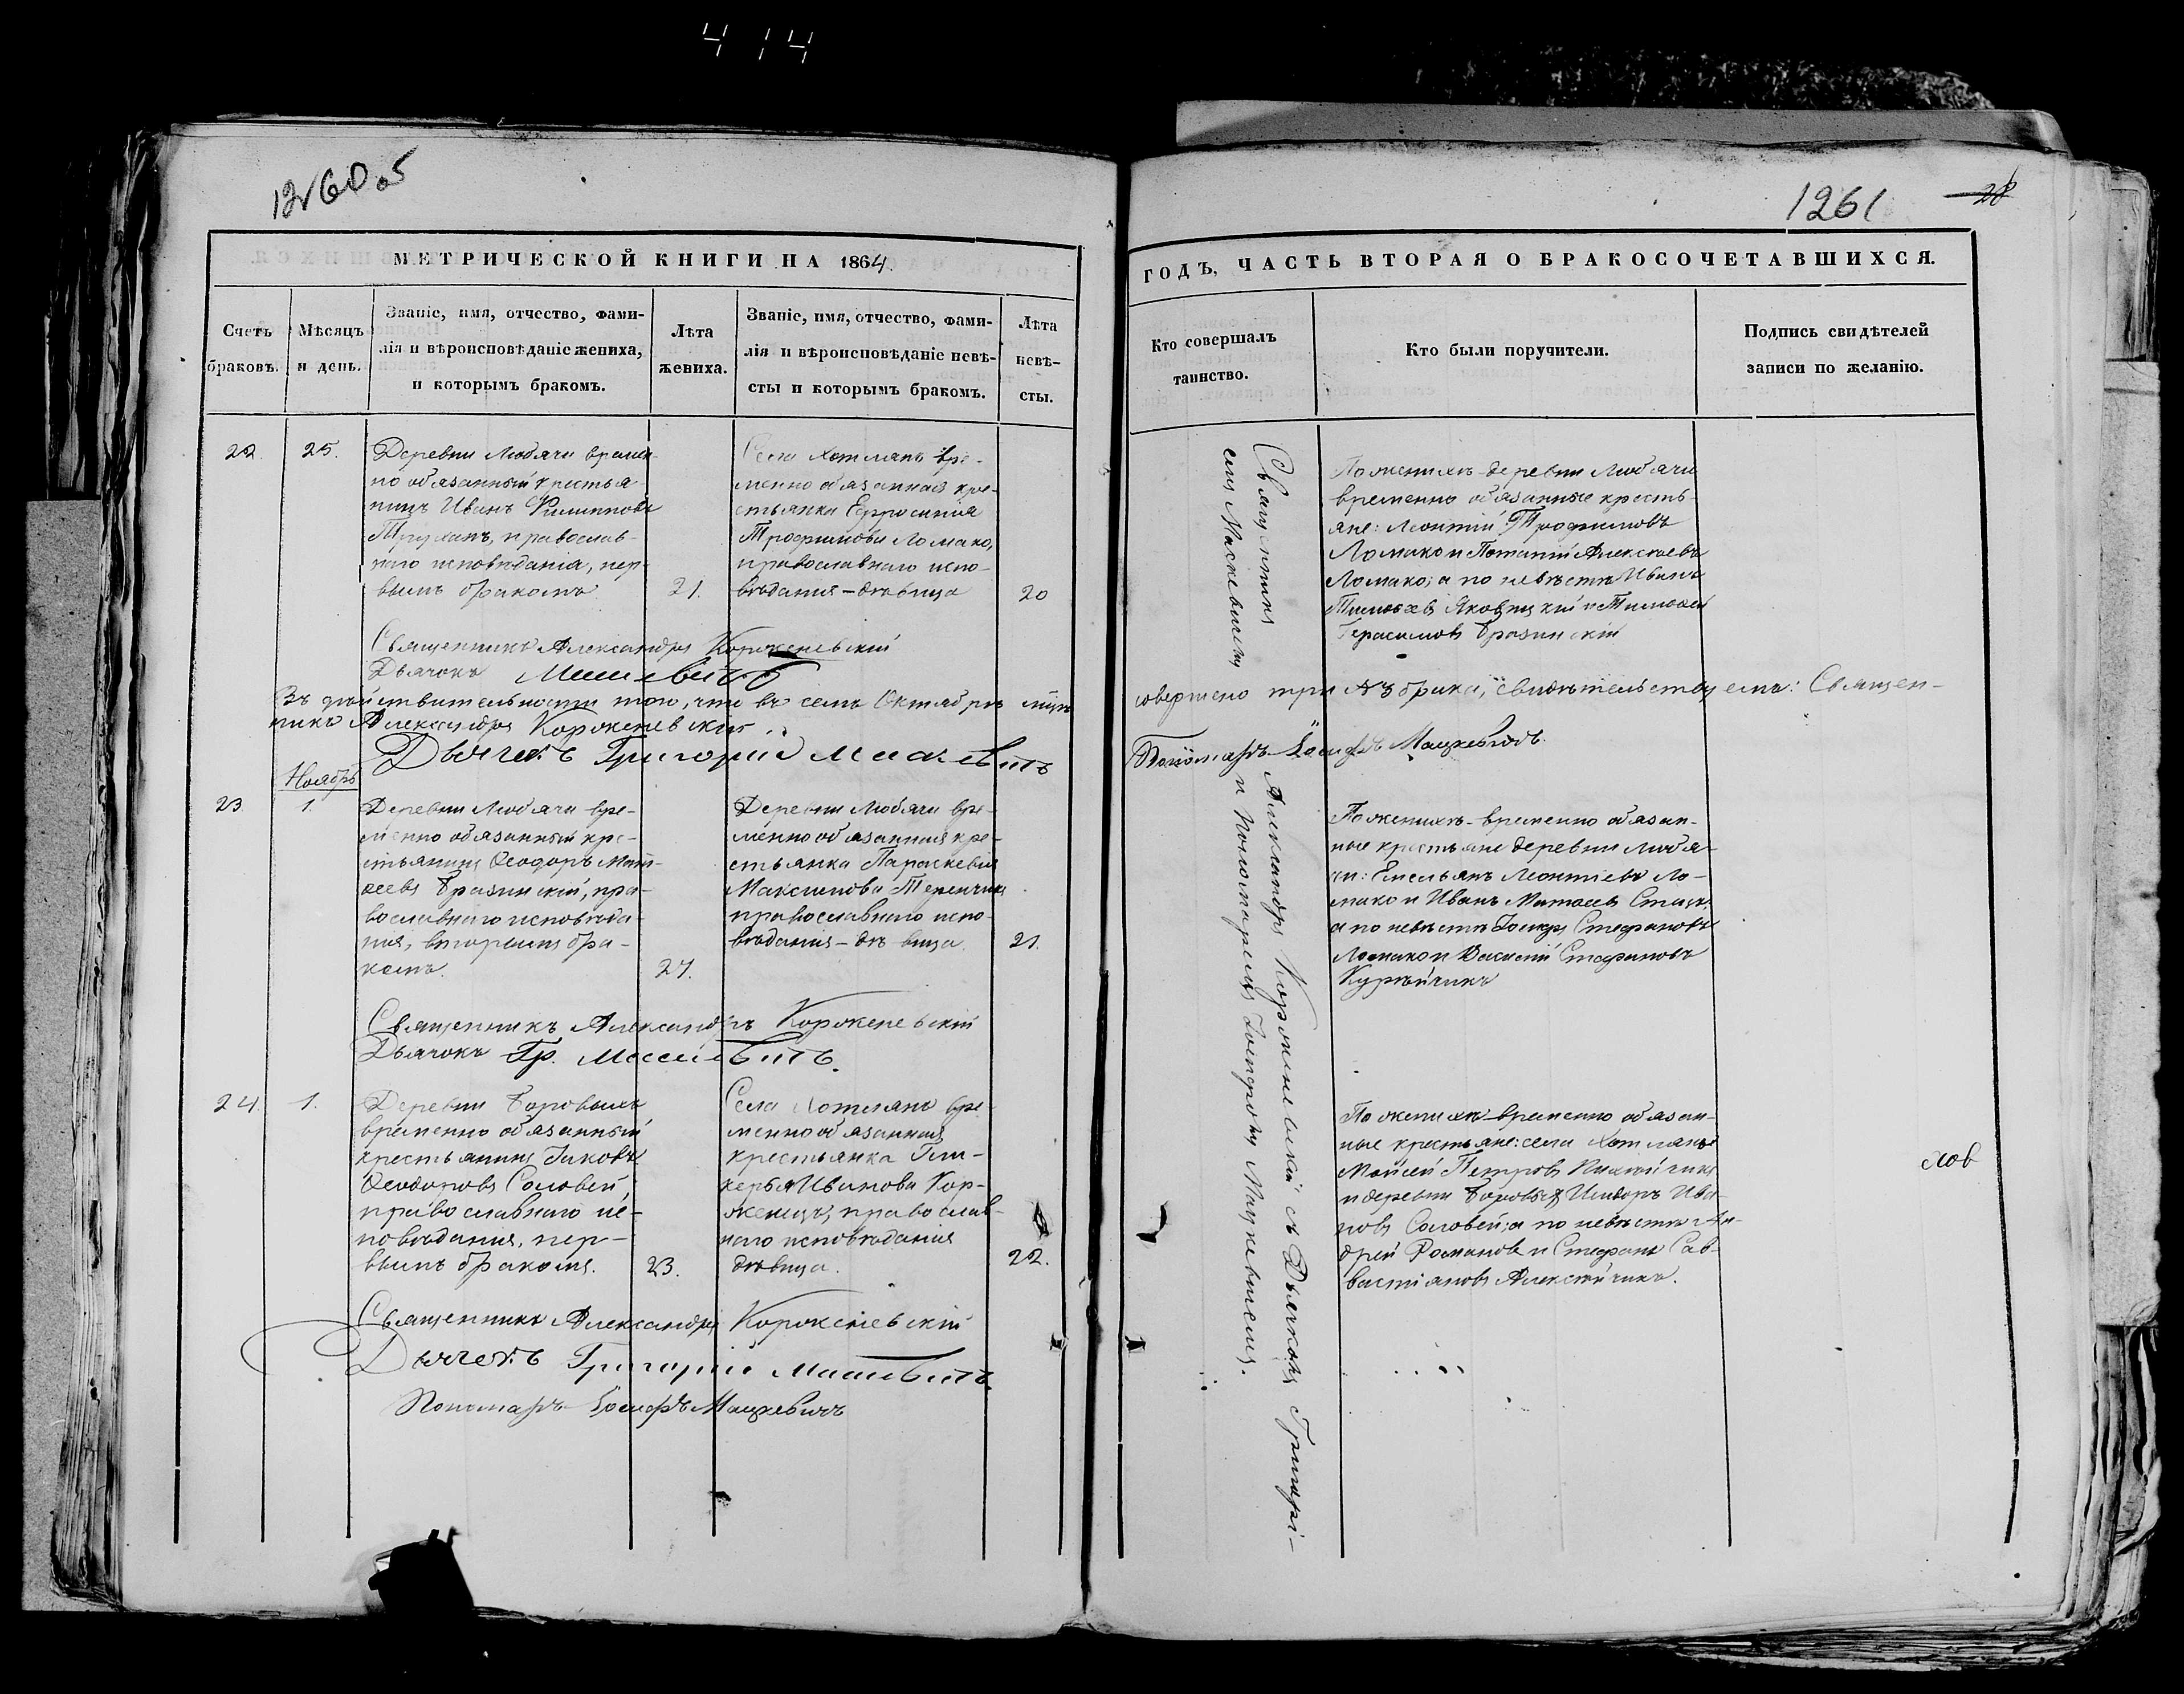 414
1260 об
1261
28
МЕТРИЧЕСКОЙ КНИГИ НА 1864
ГОДЪ, ЧАСТЬ ВТОРАЯ О БРАКОСОЧЕТАВШИХСЯ.
Счетъ браковъ.
Мѣсяцъ и день.
Званіе, имя, отчество, фами-
лія и вѣроисповѣданіе жениха,
и которымъ бракомъ.
Лѣта жениха.
Званіе, имя, отчество, фами-
лія и вѣроисповѣданіе невѣ-
сты и которымъ бракомъ.
Лѣта невѣ-
сты.
Кто совершалъ
таинство.
Кто были поручители.
Подпись свидѣтелей
записи по желанію.
22.
25.
Деревни Любачи времен-
но обязанный крестья
нинъ Иванъ Филипповъ
Труханъ, православ-
наго исповѣданія, пер-
вымъ бракомъ
21.
Села Хотлянъ вре-
менно обязанная кре-
стьянка Евфросинія
Трофимова Ломако,
православнаго испо-
вѣданія – дѣвица
20
Священникъ Александръ Корженевскій
Дьячокъ
По женихѣ деревни Любачи
временно обязанные кресть-
яне: Леонтій Трофимовъ
Ломако и Потапій Алексѣевъ
Ломако; а по невѣстѣ Иванъ
Яковицкій и Тимофей
Герасимовъ Бразинскій
Въ дѣйствительности того, что въ семъ Октябрѣ мцѣ
совершено три №3 брака, свидѣтельствуемъ: Священ-
никъ Александръ Корженевскій
Дьячекъ Григорій
Пономарь Іосифъ Мацкевичъ.
Ноябрь
23
1.
Деревни Любачи вре-
менно обязанный кре-
стьянинъ Ѳеодоръ Мат-
ѳеевъ Бразинскій, пра-
вославнаго исповѣда-
нія, вторымъ бра-
комъ.
27.
Деревни Любачи вре-
менно обязанная кре-
стьянка Параскевія
Максимова
православнаго испо-
вѣданія – дѣвица.
21.
Священникъ Александръ Корженевскій
Дьячокъ Гр.
По женихѣ – временно обязан-
ные крестьяне деревни Люба-
чи: Емельянъ Леонтіевъ Ло-
мако и Иванъ Матѳеевъ
а по невѣстѣ Іосифъ Стефановъ
Ломако и Василій Стефановъ
Курейчикъ
24.
1.
Деревни Боровыхъ
временно обязанный
крестьянинъ Іаковъ
Ѳеодоровъ Соловей,
православнаго ис-
повѣданія, пер-
вымъ бракомъ.
23.
Села Хотлянъ вре-
менно обязанная
крестьянка Гли-
керья Иванова Кор-
женецъ, православ-
наго исповѣданія
дѣвица.
22.
Священникъ Александръ Корженевскій
Дьячекъ Григорій
Пономарь Іосифъ Мацкевичъ
По женихѣ – временно обязан-
ные крестьяне: села Хотлянъ
Моисей Петровъ
и деревни Боровыхъ Исидоръ Ива-
новъ Соловей; а по невѣстѣ Ан-
дрей Романовъ и Стефанъ Сав-
вастіановъ Алексѣйчикъ.
Священникъ Александръ Корженевскій съ Дьячкомъ Григорі-
емъ и Пономаремъ Іосифомъ Мацкевичемъ.